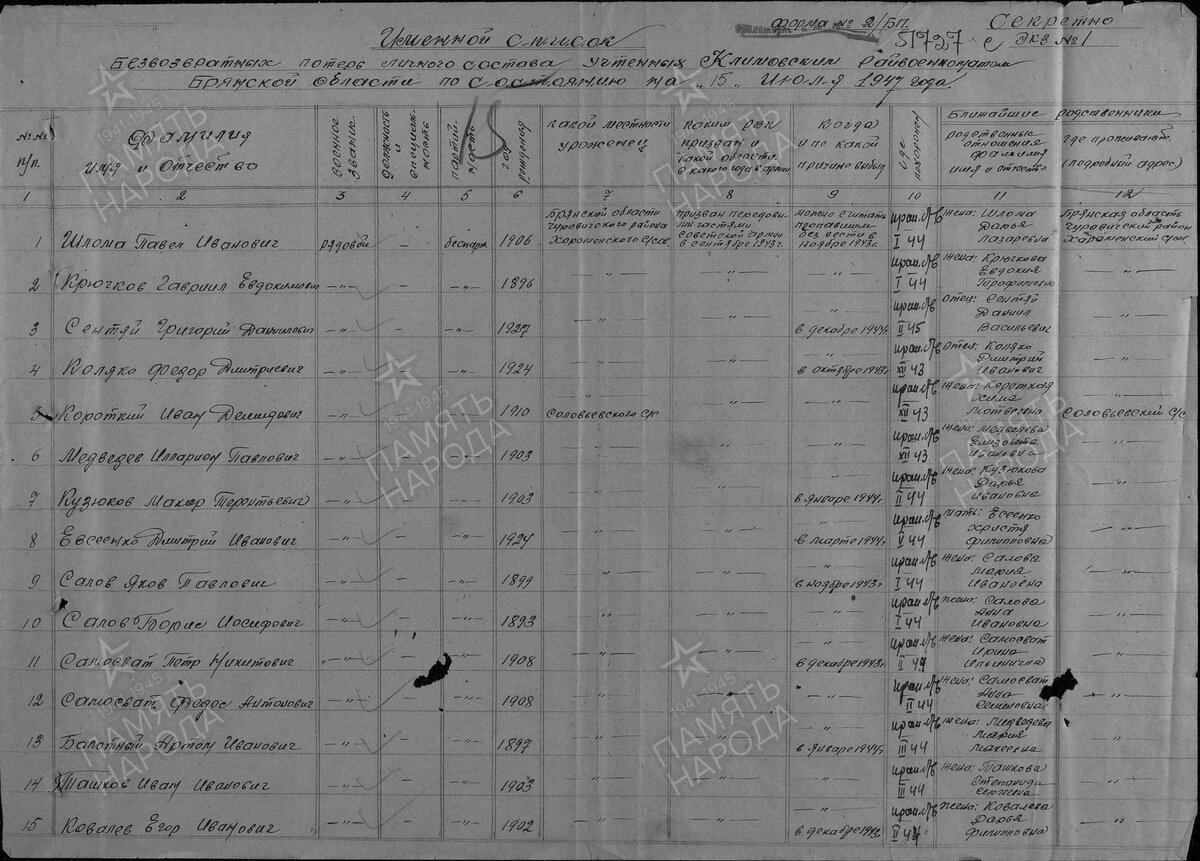 Форма № 2/БП.
Секретно
51727 с
Экз №1
Именной список
Безвозвратных потерь личного состава учтенных Климовским райвоенкоматом
Брянской области по состоянию на „15„ Июля 1947 года.
№№ п/п.
Фамилия имя и отчество
военное звание
должность и специальность
партийность
год рождения
какой местности уроженец
каким РВК призван и какой области. С какого года в армии
когда и по какой причине выбыл
где похоронен
Ближайшие родственники
родственные отношения фамилия имя и отчество
где проживают. (подробный адрес)
1 2 3 4 5 6 7 8 9 10 11 12
1 Шлома Павел Иванович рядовой - беспарт. 1906 Брянской области Чуровичского района Хороменского с/сов. призван передовыми частями Советской армии в сентябре 1943г. можно считать пропавшим без вести в ноябре 1943г. I 44 жена: Шлома Дарья Лазаревна Брянская область Чуровичский район Хароменский с/сов
2 Крючков Гавриил Евдокимович -„- - -„- 1896 -„- -„- -„- I 44 жена: Крючкова Евдокия Трофимовна -„-
3 Сентяй Григорий Данилович -„- - -„- 1927 -„- -„- „ в декабре 1944г. II 45 отец: Сентяй Данил Васильевич -„-
4 Коляко Федор Дмитриевич -„- - -„- 1924 -„- -„- „ в октябре 1943г. XII 43 отец: Коляко Дмитрий Иванович -„-
5 Короткий Иван Демидович -„- - -„- 1910 „ Соловьевского с/с -„- -„- XII 43 жена: Короткая Хима Матвеевна Соловьевский с/с
6 Медведев Илларион Павлович -„- - -„- 1903 -„- -„- -„- XII 43 жена: Медведева Елизовета Ивановна -„-
7 Кузюков Макар Терентьевич -„- - -„- 1903 -„- -„- „ в январе 1944г. II 44 жена: Кузюкова Дарья Ивановна -„-
8 Евсеенко Дмитрий Иванович -„- - -„- 1924 -„- -„- „ в марте 1944г. V 44 мать: Есеенко Христя Филипповна -„-
9 Салов Яков Павлович -„- - -„- 1899 -„- -„- „ в ноябре 1943г I 44 жена: Салова Мария Ивановна -„-
10 Салов Борис Иосифович -„- - -„- 1893 -„- -„- -„- I 44 жена: Салова Анна Ивановна -„-
11 Самосват Петр Никитович -„- - -„- 1908 -„- -„- „ в декабре 1943г. II 44 жена: Самосват Ирина Ильинична -„-
12 Самосват Федос Антонович -„- - -„- 1908 -„- -„- -„- II 44 жена: Самосват Анна Семеновна -„-
13 Балотный Артем Иванович -„- - -„- 1897 -„- -„- „ в январе 1944г. III 44 жена: Медведева Мария Макеевна -„-
14 Ташков Иван Иванович -„- - -„- 1903 -„- -„- -„- III 44 жена: Ташкова Степанида Сергеевна -„-
15 Ковалев Егор Иванович -„- - -„- 1902 -„- -„- „ в декабре 1943г. II 44 жена: Ковалева Дарья Филипповна -„-
1941-1945
ПАМЯТЬ
НАРОДА
1941-1945
ПАМЯТЬ
НАРОДА
1941-1945
ПАМЯТЬ
НАРОДА
1941-1945
ПАМЯТЬ
НАРОДА